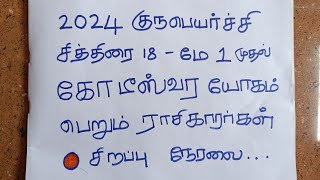 2024 குருபெயர்ச்சி
சித்திரை 18 - மே 1 முதல்
கோடீஸ்வர யோகம்
பெறும் ராசிகாரர்கள்
சிறப்பு நேரலை...